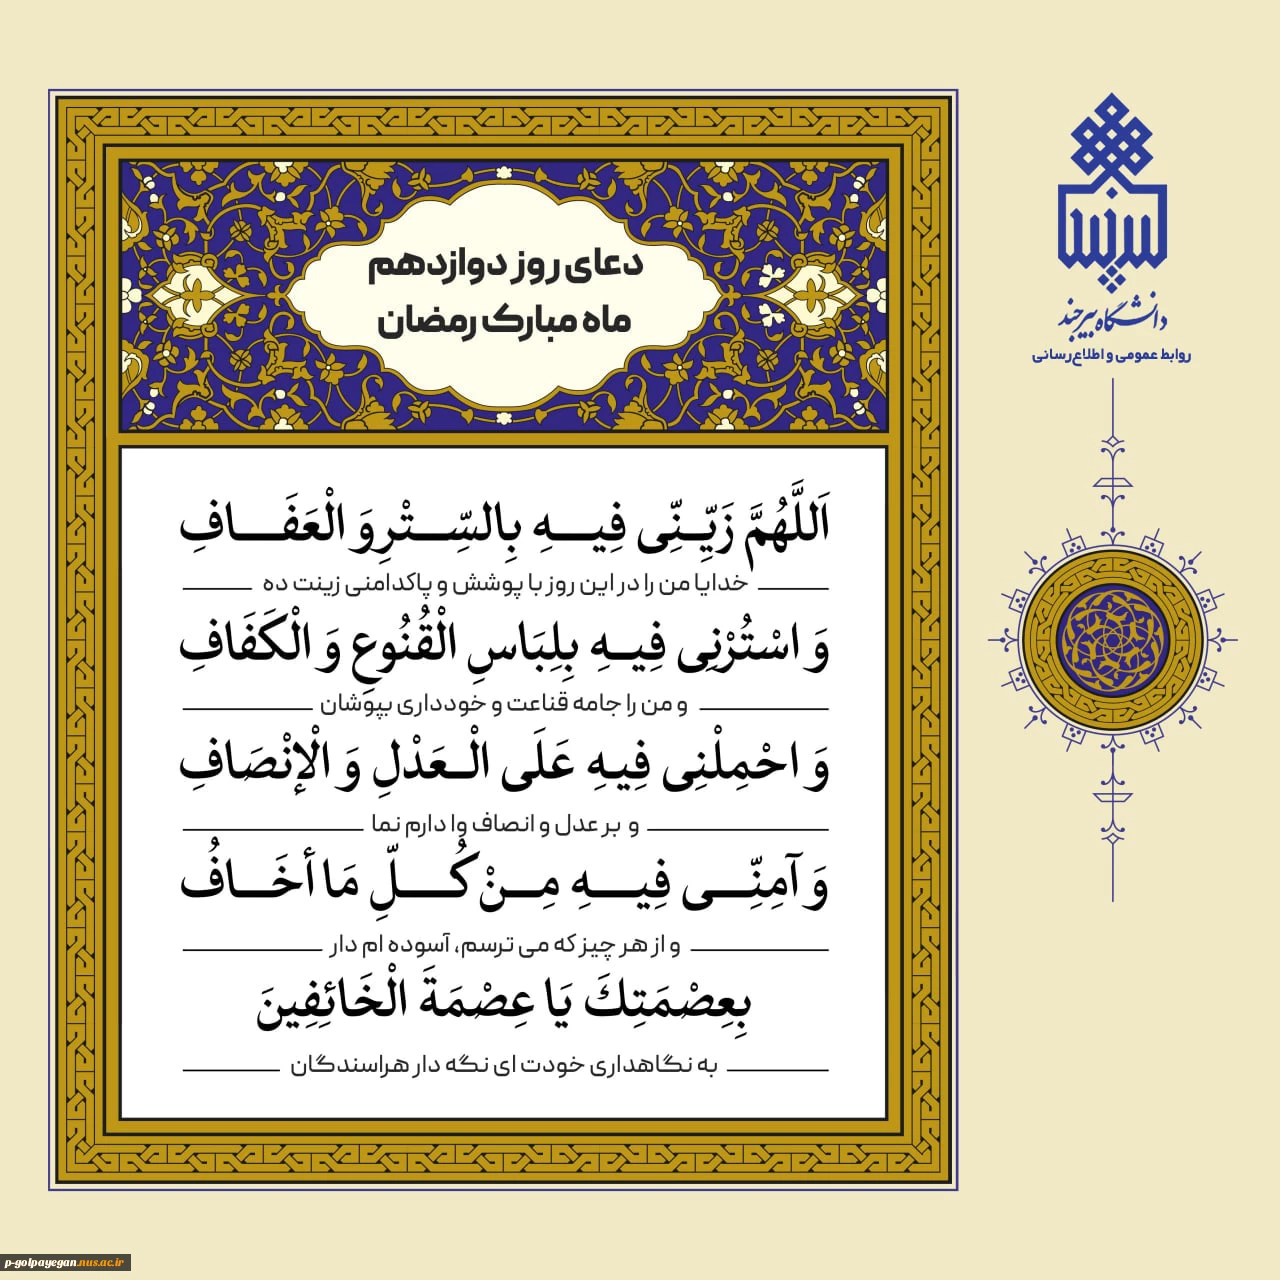 دعای روز دوازدهم
ماه مبارک رمضان
اَللَّهُمَّ زَيِّنِّى فِيهِ بِالسِّتْرِ وَ الْعَفَافِ
خدایا من را در این روز با پوشش و پاکدامنی زینت ده
وَ اسْتُرْنِى فِيهِ بِلِبَاسِ الْقُنُوعِ وَ الْكَفَافِ
و من را جامه قناعت و خودداری بپوشان
وَ احْمِلْنِى فِيهِ عَلَى الْعَدْلِ وَ الْإنْصَافِ
و بر عدل و انصاف وا دارم نما
وَ آمِنِّى فِيهِ مِنْ كُلِّ مَا أخَافُ
و از هر چیز که می ترسم، آسوده ام دار
بِعِصْمَتِكَ يَا عِصْمَةَ الْخَائِفِينَ
به نگاهداری خودت ای نگه دار هراسندگان
دانشگاه بیرجند
روابط عمومی و اطلاع‌رسانی
p-golpayegan.nus.ac.ir